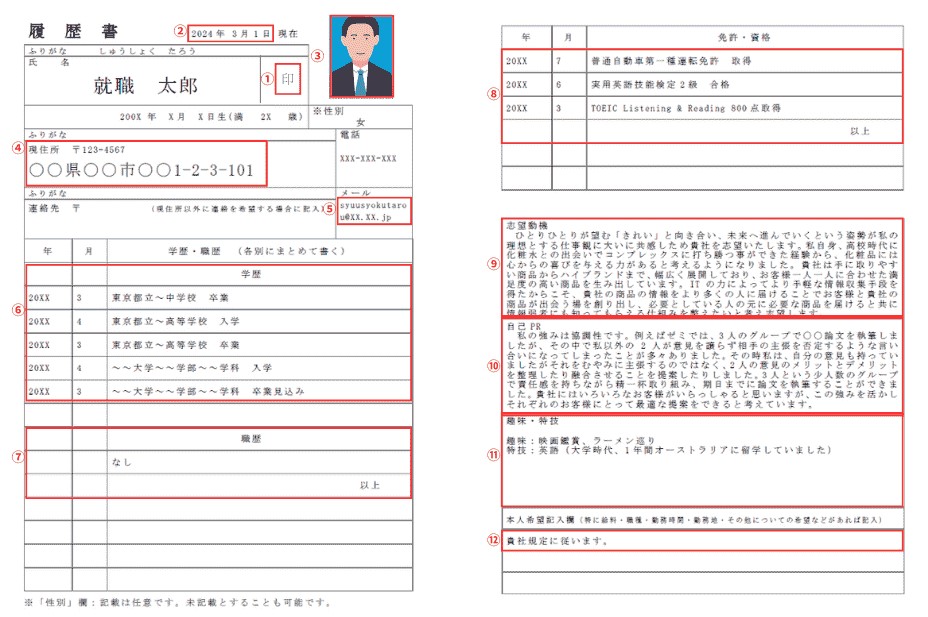 履 歴 書
② 2024年 3月1日 現在
③
ふりがな しゅうしょく たろう
氏 名
就職 太郎
① 印
200X 年 X月 X日生(満 2X 歳)
※性別
女
ふりがな
電話
④ 現住所 〒123-4567
XXX-XXX-XXX
〇〇県〇〇市〇〇1-2-3-101
ふりがな
メール
連絡先 〒 (現住所以外に連絡を希望する場合に記入)
⑤ syuusyokutaro
u@XX.XX.jp
年 月 学歴・職歴 (各別にまとめて書く)
⑥
学歴
20XX 3 東京都立～中学校 卒業
20XX 4 東京都立～高等学校 入学
20XX 3 東京都立～高等学校 卒業
20XX 4 ～～大学～～学部～～学科 入学
20XX 3 ～～大学～～学部～～学科 卒業見込み
⑦
職歴
なし
以上
※「性別」欄：記載は任意です。未記載とすることも可能です。
年 月 免許・資格
⑧
20XX 7 普通自動車第一種運転免許 取得
20XX 6 実用英語技能検定2級 合格
20XX 3 TOEIC Listening & Reading 800点取得
以上
⑨
志望動機
ひとりひとりが望む「きれい」と向き合い、未来へ進んでいくという姿勢が私の
理想とする仕事観に大いに共感したため貴社を志望いたします。私自身、高校時代に
化粧水との出会いでコンプレックスに打ち勝つ事ができた経験から、化粧品には
心からの喜びを与える力があると考えるようになりました。貴社は手に取りやす
い商品からハイブランドまで、幅広く展開しており、お客様一人一人に合わせた満
足度の高い商品を生み出しています。ITの力によってより手軽な情報収集手段を
得たからこそ、貴社の商品の情報をより多くの人に届けることでお客様と貴社の
商品が出会う場を創り出し、必要としている人の元に必要な商品を届けると共に
情報弱者にも知ってもらえる仕組みを整えたいと考え志望します。
⑩
自己PR
私の強みは協調性です。例えばゼミでは、3人のグループで〇〇論文を執筆しま
したが、その中で私以外の 2 人が意見を譲らず相手の主張を否定するような言い
合いになってしまったことが多々ありました。その時私は、自分の意見も持ってい
ましたがそれをむやみに主張するのではなく、2人の意見のメリットとデメリット
を整理したり融合させることを提案したりしました。3人という少人数のグループ
で責任感を持ちながら精一杯取り組み、期日までに論文を執筆することができま
した。貴社にはいろいろなお客様がいらっしゃると思いますが、この強みを活かし
それぞれのお客様にとって最適な提案をできると考えています。
⑪
趣味・特技
趣味：映画鑑賞、ラーメン巡り
特技：英語(大学時代、1年間オーストラリアに留学していました)
本人希望記入欄(特に給料・職種・勤務時間・勤務地・その他についての希望などがあれば記入)
⑫ 貴社規定に従います。